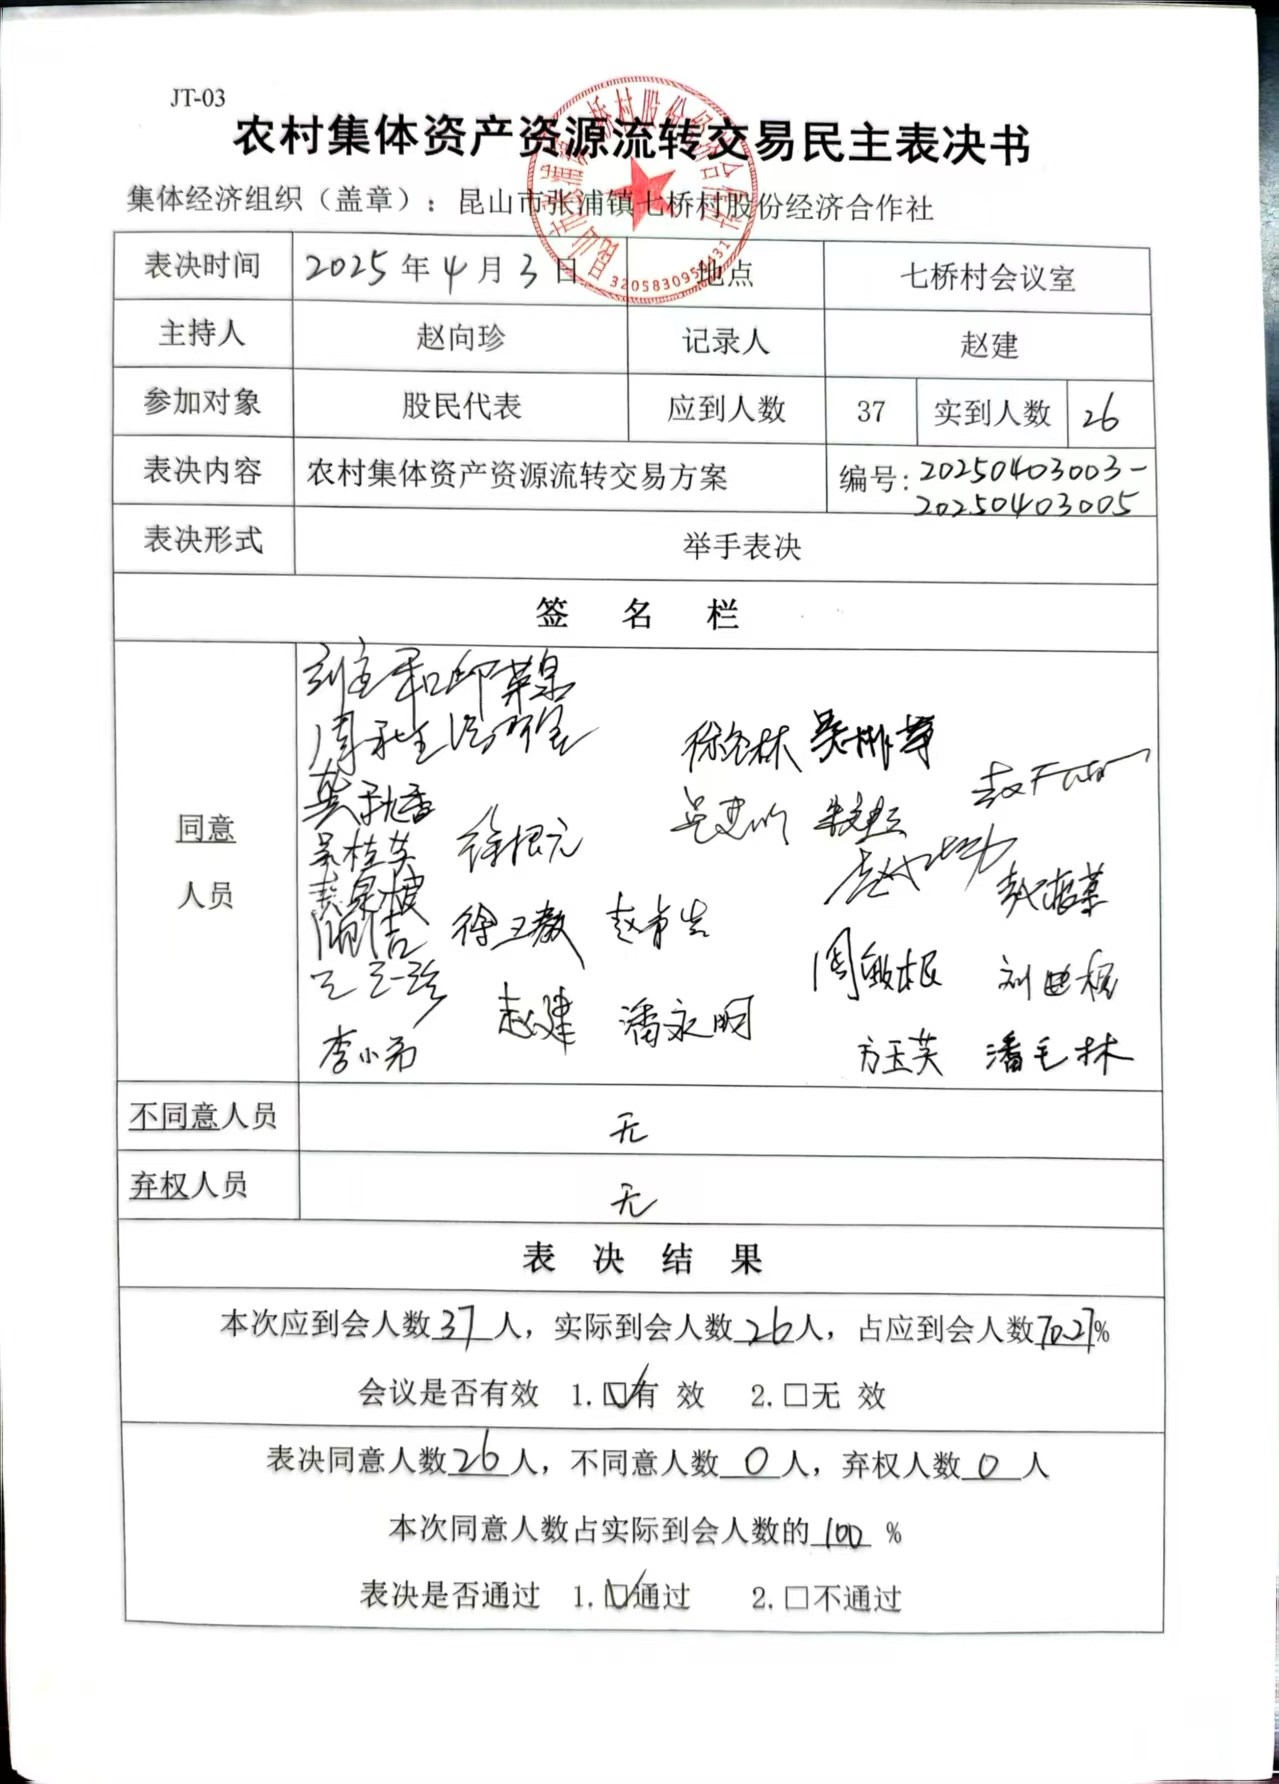 JT-03
农村集体资产资源流转交易民主表决书
集体经济组织（盖章）：昆山市张浦镇七桥村股份经济合作社
3205830956431
表决时间 2025年4月3日 地点 七桥村会议室
主持人 赵向珍 记录人 赵建
参加对象 股民代表 应到人数 37 实到人数 26
表决内容 农村集体资产资源流转交易方案 编号：20250403003-
20250403005
表决形式 举手表决
签 名 栏
同意
人员
邱菜泉
徐根元
吴桂英
徐卫教
周敏根
赵建 潘永明
李小弟 方玉芙 潘毛林
不同意人员 无
弃权人员 无
表 决 结 果
本次应到会人数37人，实际到会人数26人，占应到会人数70.27%
会议是否有效 1.☑有 效 2.□无 效
表决同意人数26人，不同意人数0人，弃权人数0人
本次同意人数占实际到会人数的100 %
表决是否通过 1.☑通过 2.□不通过